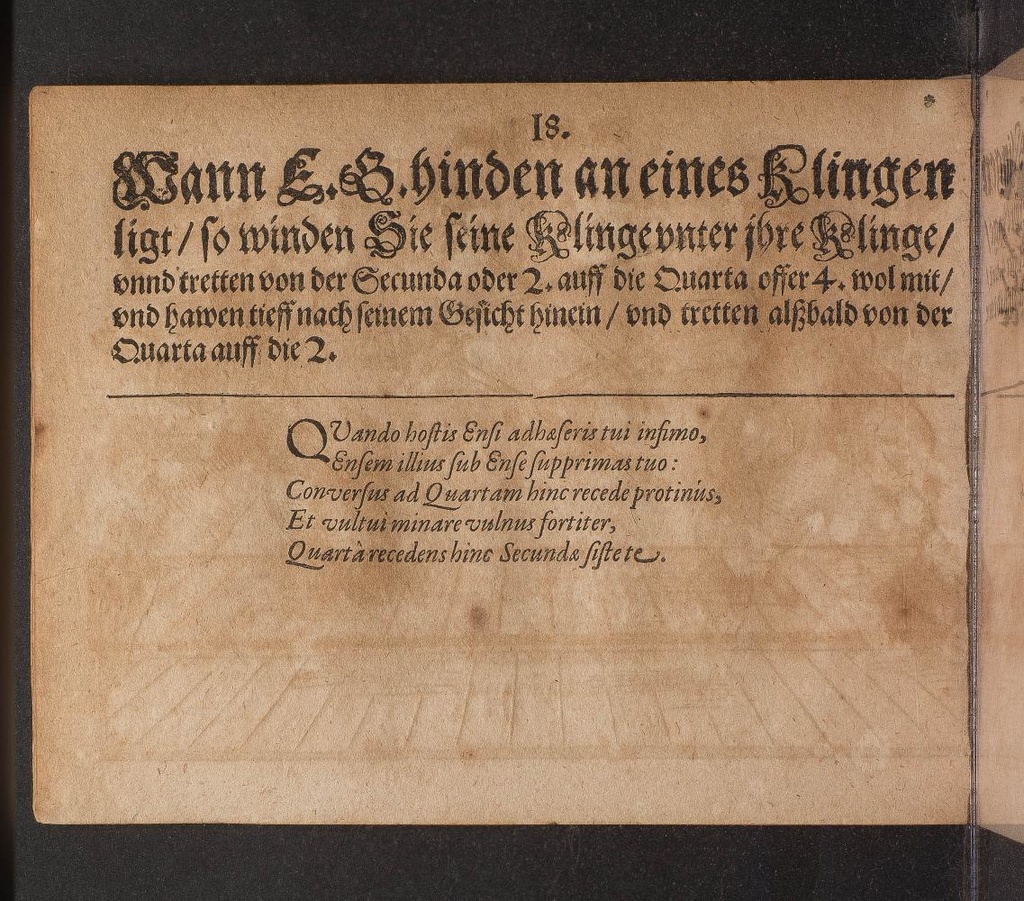 18.
Wann E. G. hinden an eines Klingen
ligt / so winden Sie seine Klinge vnter jhre Klinge /
vnnd tretten von der Secunda oder 2. auff die Quarta offer 4. wol mit /
vnd hawen tieff nach seinem Gesicht hinein / vnd tretten alßbald von der
Quarta auff die 2.
QVando hostis Ensi adhæseris tui infimo,
Ensem illius sub Ense supprimas tuo:
Conversus ad Quartam hinc recede protinùs,
Et vultui minare vulnus fortiter,
Quartà recedens hinc Secundæ siste te.